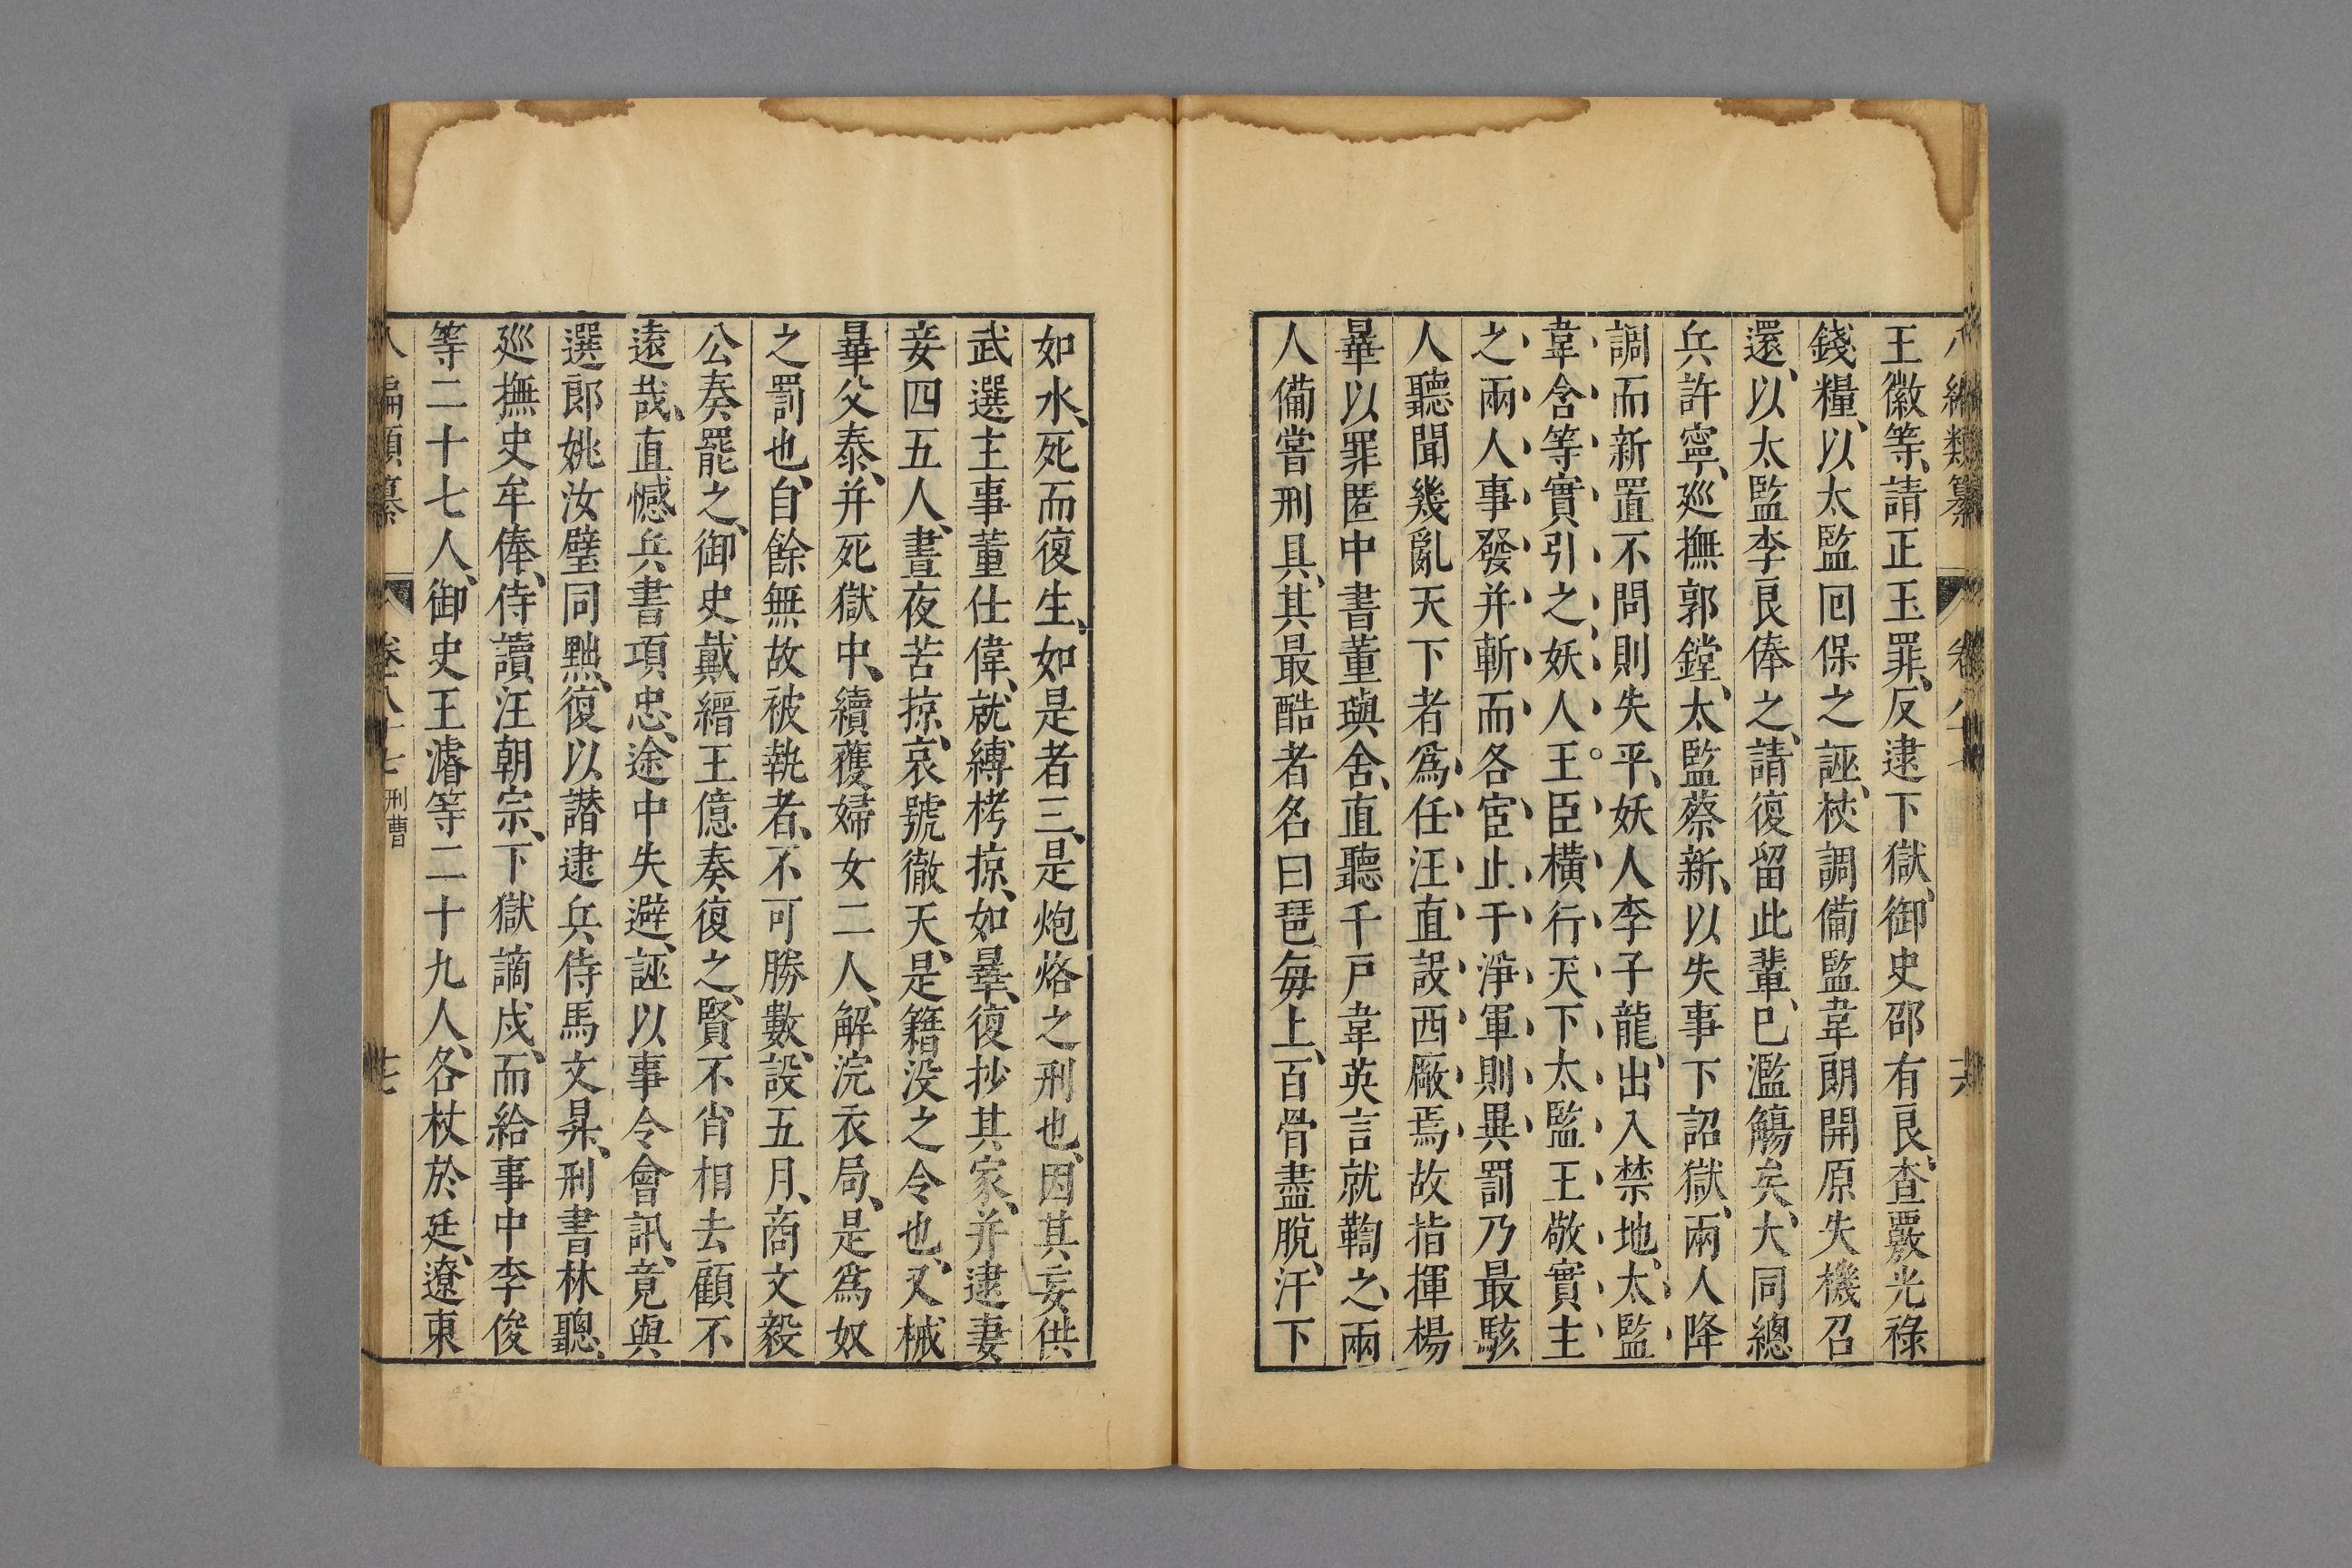 編類纂 卷八十 共
王徽等、請正玉罪、反逮下獄、御史邵有良、查覈光祿
錢糧、以太監囘保之誣、杖調備監韋朗開原失機召
還、以太監李良俸之、請復留此輩、已濫觴矣、大同總
兵許寧、廵撫郭鏜、太監蔡新、以失事下詔獄、兩人降
調而新置不問則失平、妖人李子龍、出入禁地、太監
韋含等實引之妖人王臣橫行天下太監王敬實主
之兩人事發并斬而各宦止于淨軍則異罰乃最駭
人聽聞幾亂天下者爲任汪直設西厰焉故指揮楊
曅以罪匿中書董璵舍、直聽千戶韋英言就鞫之、兩
人備嘗刑具、其最酷者名曰琶每上、百骨盡脫、汗下
如水、死而復生、如是者三、是炮烙之刑也、因其妄供
武選主事董仕偉、就縛栲掠、如曅、復抄其家、并逮妻
妾四五人、晝夜苦掠、哀號徹天、是籍没之令也、又械
曅父泰、并死獄中、續獲婦女二人、解浣衣局、是爲奴
之罰也、自餘無故被執者、不可勝數、設五月、商文毅
公奏罷之、御史戴縉王億奏復之、賢不肖相去顧不
遠哉、直憾兵書項忠、途中失避、誣以事令會訊、竟與
選郎姚汝璧同黜、復以譖逮兵侍馬文昇、刑書林聰、
廵撫史牟俸、侍讀汪朝宗、下獄謫戍、而給事中李俊
等二十七人、御史王濬等二十九人、各杖於廷、遼東
八編類纂 卷八十七 刑曹 七